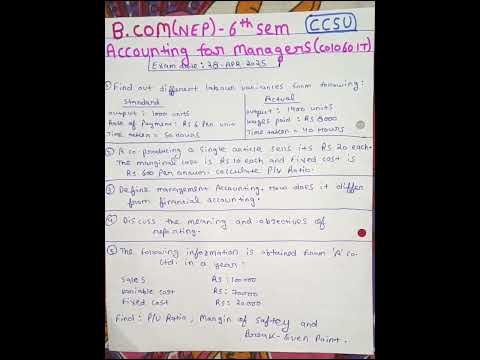 B.COM(NEP)-6th sem CCSU
Accounting for Managers(C010601T)
Exam Date: 28-APR-2025
① Find out different labour variances from following:
Standard
output: 1000 units
Rate of Payment: Rs 6 Per unit
Time taken = 50 hours
Actual
output: 1200 units
wages paid: Rs 8000
Time taken = 40 Hours
② A co. producing a single article sells its Rs 20 each.
The marginal cost is Rs 10 each and fixed cost is
Rs 600 Per annum. calculate P/V Ratio.
③ Define management Accounting. How does it differ
from financial accounting.
④ Discuss the meaning and objectives of
reporting.
⑤ The following information is obtained from 'A' co.
Ltd. in a year:
Sales Rs: 100000
variable cost Rs: 70000
fixed cost Rs: 20000
Find: P/V Ratio, Margin of saftey and
Break-Even Point.